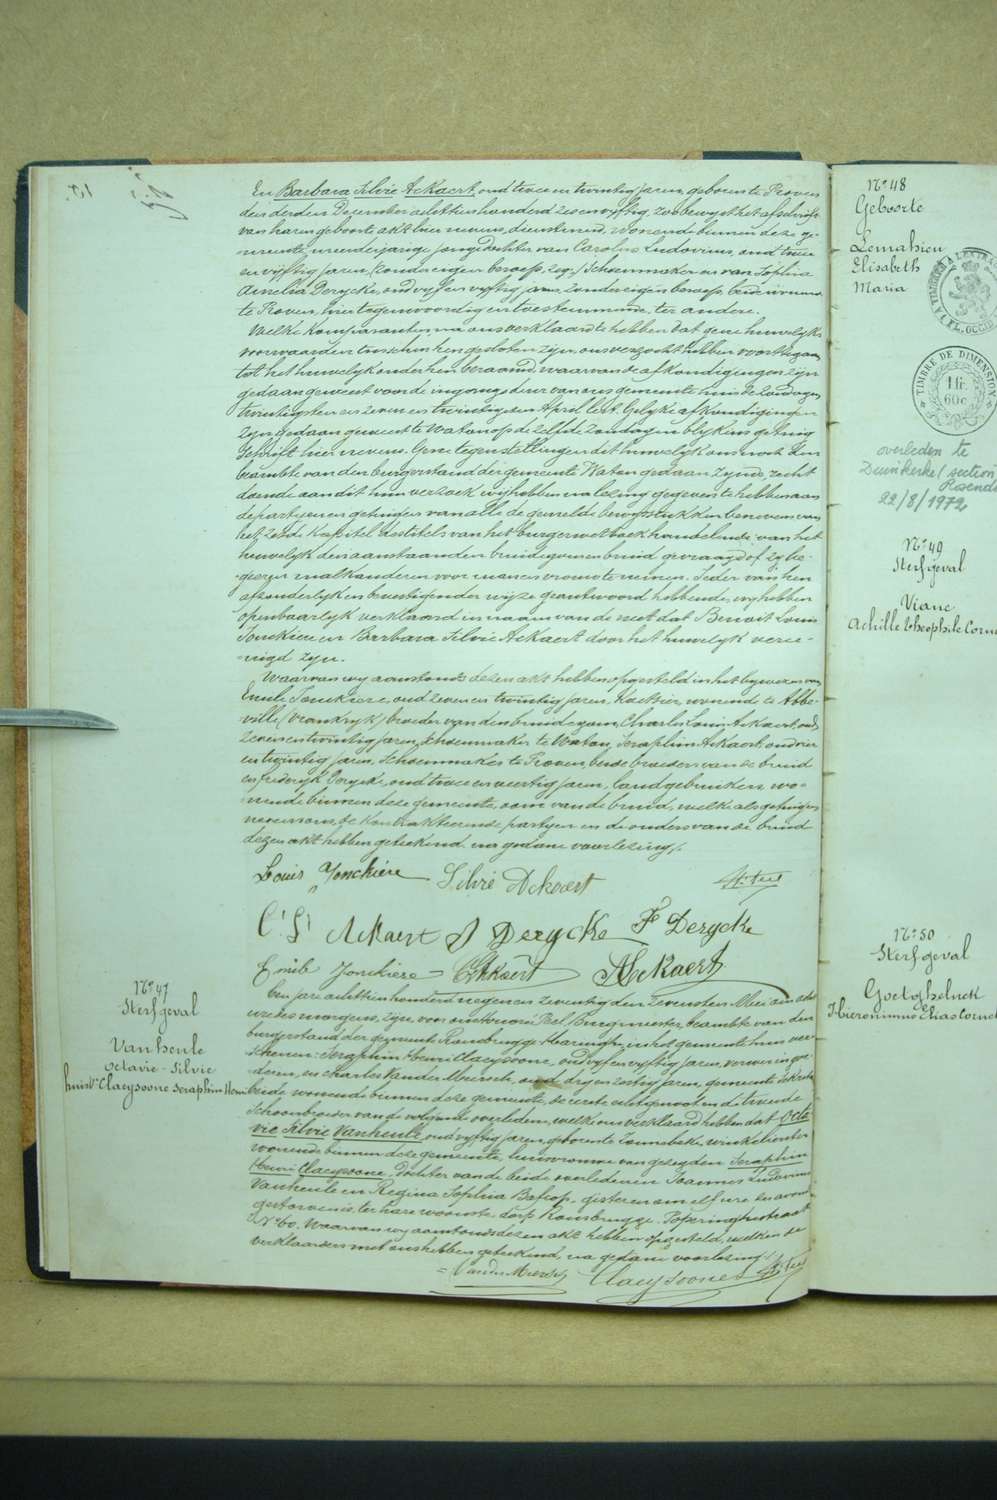 En Barbara Silvie Ackaert, oud twee en twintig jaren, geboren te Proven
den derden December achttien honderd zes en vyftig, zoo bewyst het afschrift
van haren geboorte akt hier nevens, dienstmeid, wonende binnen deze ge-
meente, meerderjarige jonge dochter van Carolus Ludovicus, oud twee
en vyftig jaren, (zonder eigen beroep, zeg:) Schoenmaker en van Sophia
Amelia Derycke, oud vyf en vyftig jaren, zonder eigen beroep, beide wonende
te Proven, hier tegenwoordig en toestemmende, ter andere.
Welke komparanten, na ons verklaard te hebben dat geene huwelyks
voorwaarden tusschen hen gesloten zyn, ons verzocht hebben voorttegaan
tot het huwelyk onder hen beraamd, waarvan de afkondigingen zyn
gedaan geweest voor de ingangdeur van ons gemeente huis de Zondagen
twintigsten en zeven en twintigsten April lest. Gelyke afkondigingen
zyn gedaan geweest te Watou op de zelfde Zondagen blykens getuig
schrift hier nevens. Geene tegenstellingen dit huwelyk ons noch den
beambte van den burgerstand der gemeente Watou gedaan zynde, recht
doende aan dit hun verzoek, wy hebben na lezing gegeven te hebben aan
de partyen en getuigen van alle de gemelde bewysstukken benevens van
het zesde kapittel des titels van het burger wetboek handelende van het
huwelyk den aanstaanden bruidegom en bruid gevraagd of zy be-
geeren malkanderen voor man en vrouw te nemen. Ieder van hen
afzonderlyk en bevestigender wyze geantwoord hebbende, wy hebben
openbaarlyk verklaard in naam van de wet dat Benoit Louis
Jonckiere en Barbara Silvie Ackaert door het huwelyk veree-
nigd zyn.
Waarvan wy aanstonds dezen akt hebben opgesteld in het bywezen van
Emile Jonckiere, oud zeven en twintig jaren, Koetsier, wonende te Abbe-
ville (Vrankryk) broeder van den bruidegom, Charles Louis Ackaert, oud
zeven en twintig jaren, schoenmaker te Watou, Seraphin Ackaert, oud vier
en twintig jaren, schoenmaker te Proven, beide broeders van de bruid
en frederyk Derycke, oud twee en veertig jaren, landgebruiker, wo-
nende binnen deze gemeente, oom van de bruid, welke als getuigen
nevens ons, de kontrakteerende partyen en de ouders van de bruid
dezen akt hebben geteekend na gedane voorlezing.
Louis Jonckiere Silvie Ackaert
C L Ackaert S Derycke F Derycke
Emile Jonckiere Ackaert Ackaert
Nº 47
Sterfgeval
Vanheule
Octavie-Silvie
huisvr Claeysoone Seraphin Henri
Ten jare achttien honderd negen en zeventig den zevensten Mei om acht
ure des morgens, zyn, voor ons Burgmeester, beambte van den
burgerstand der gemeente Rousbrugge-Haringhe, in het gemeente huis ver-
schenen: Seraphin Henri Claeysoone, oud vyf en vyftig jaren, verwer in gou-
deren, en charles Vander Meersch, oud dry en zestig jaren, gemeente Sekretaris
beide wonende binnen deze gemeente, de eerste echtgenoot en de tweede
Schoonbroeder van de volgende overledene, welke ons verklaard hebben dat Octa-
vie Silvie Vanheule, oud vyftig jaren, geboren te Zonnebeke, winkelierster
wonende binnen deze gemeente, huisvrouwe van gezegden Seraphin
Henri Claeysoone, dochter van de beide overledenen Joannes Ludovicus
Vanheule en Regina Sophia Bafcop, gisteren om elf ure en avond
gestorven is, ter hare woonste, dorp Rousbrugge, Poperinghestraat
Nº 60. Waarvan wy aanstonds dezen akt hebben opgesteld, welken de
verklaarders met ons hebben geteekend, na gedane voorlezing.
Vander Meersch Claeysoone
Nº 48
Geboorte
Lemahieu
Elisabeth
Maria
TIMBRE DE DIMENSION
1 fr.
60 c
overleden te
Duinkerke / section
Rosendael
22/8/1972
Nº 49
Sterfgeval
Viane
Achille Theophile Corne
Nº 50
Sterfgeval
Goetghelück
Hieronimus Elias Cornel